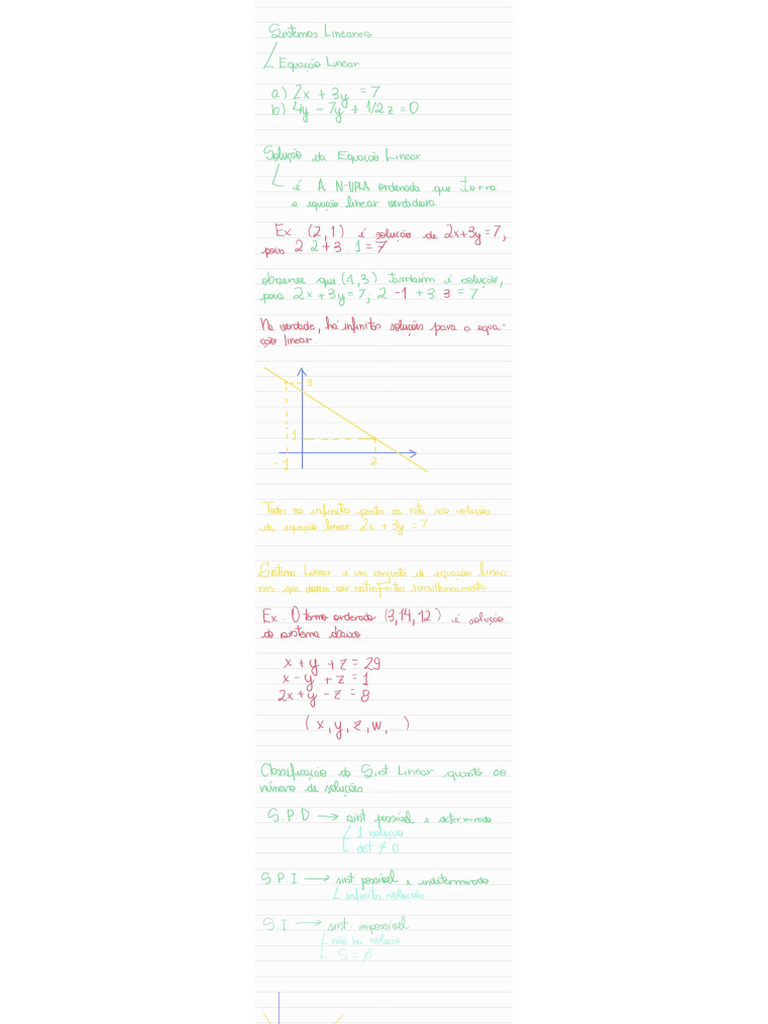 Sistemas Lineares
Equação Linear
a) 2x + 3y = 7
b) 4y - 7y + 1/2 z = 0
Solução da Equação Linear
é A N-UPLA ordenada que torna
a equação linear verdadeira.
Ex. (2,1) é solução de 2x+3y=7,
pois 2 2 + 3 . 1 = 7
observe que (-1,3) também é solução,
pois 2x + 3y = 7; 2 -1 + 3 3 = 7
Na verdade, há infinitas soluções para a equa-
ção linear.
3
1
-1
2
Todos os infinitos pontos da reta são soluções
da equação linear 2x + 3y = 7
Sistema Linear é um conjunto de equações linea-
res que devem ser satisfeitas simultaneamente
Ex. O termo ordenado (3,14,12) é solução
do sistema abaixo
x + y + z = 29
x - y + z = 1
2x + y - z = 8
(x, y, z, w, ...)
Classificação do Sist Linear quanto ao
número de soluções
S.P.D → sist possível e determinado
1 solução
det ≠ 0
S P. I → sist possível e indeterminado
infinitas soluções
S.I → sist. impossível
não há solução
S = ∅